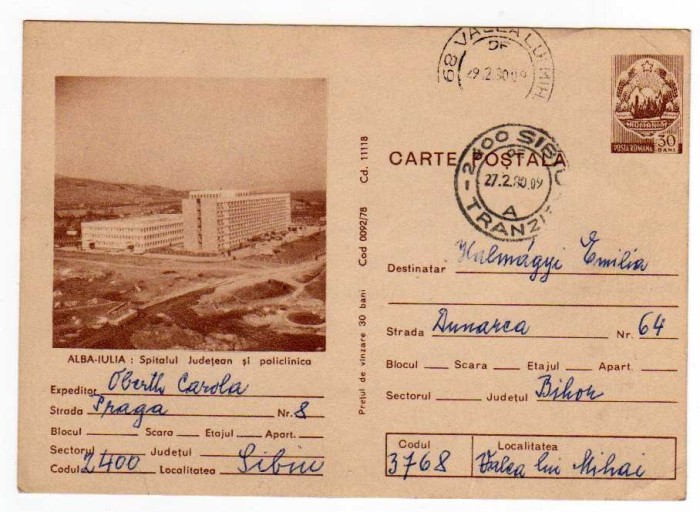 68 VALEA LUI MIH
DF
29.2.80.09
POSTA ROMANA 30 BANI
CARTE POŞTALĂ
2400 SIBIU
DF
27.2.80.09
A
TRANZIT
ALBA-IULIA : Spitalul Judeţean şi policlinica
Expeditor Oberth Carola
Strada Praga Nr. 8
Blocul Scara Etajul Apart.
Sectorul Judeţul
Codul 2400 Localitatea Sibiu
Preţul de vînzare 30 bani Cod 0092/78 Cd. 11118
Destinatar Halmágyi Emilia
Strada Dunarea Nr. 64
Blocul Scara Etajul Apart.
Sectorul Judeţul Bihor
Codul Localitatea
3768 Valea lui Mihai